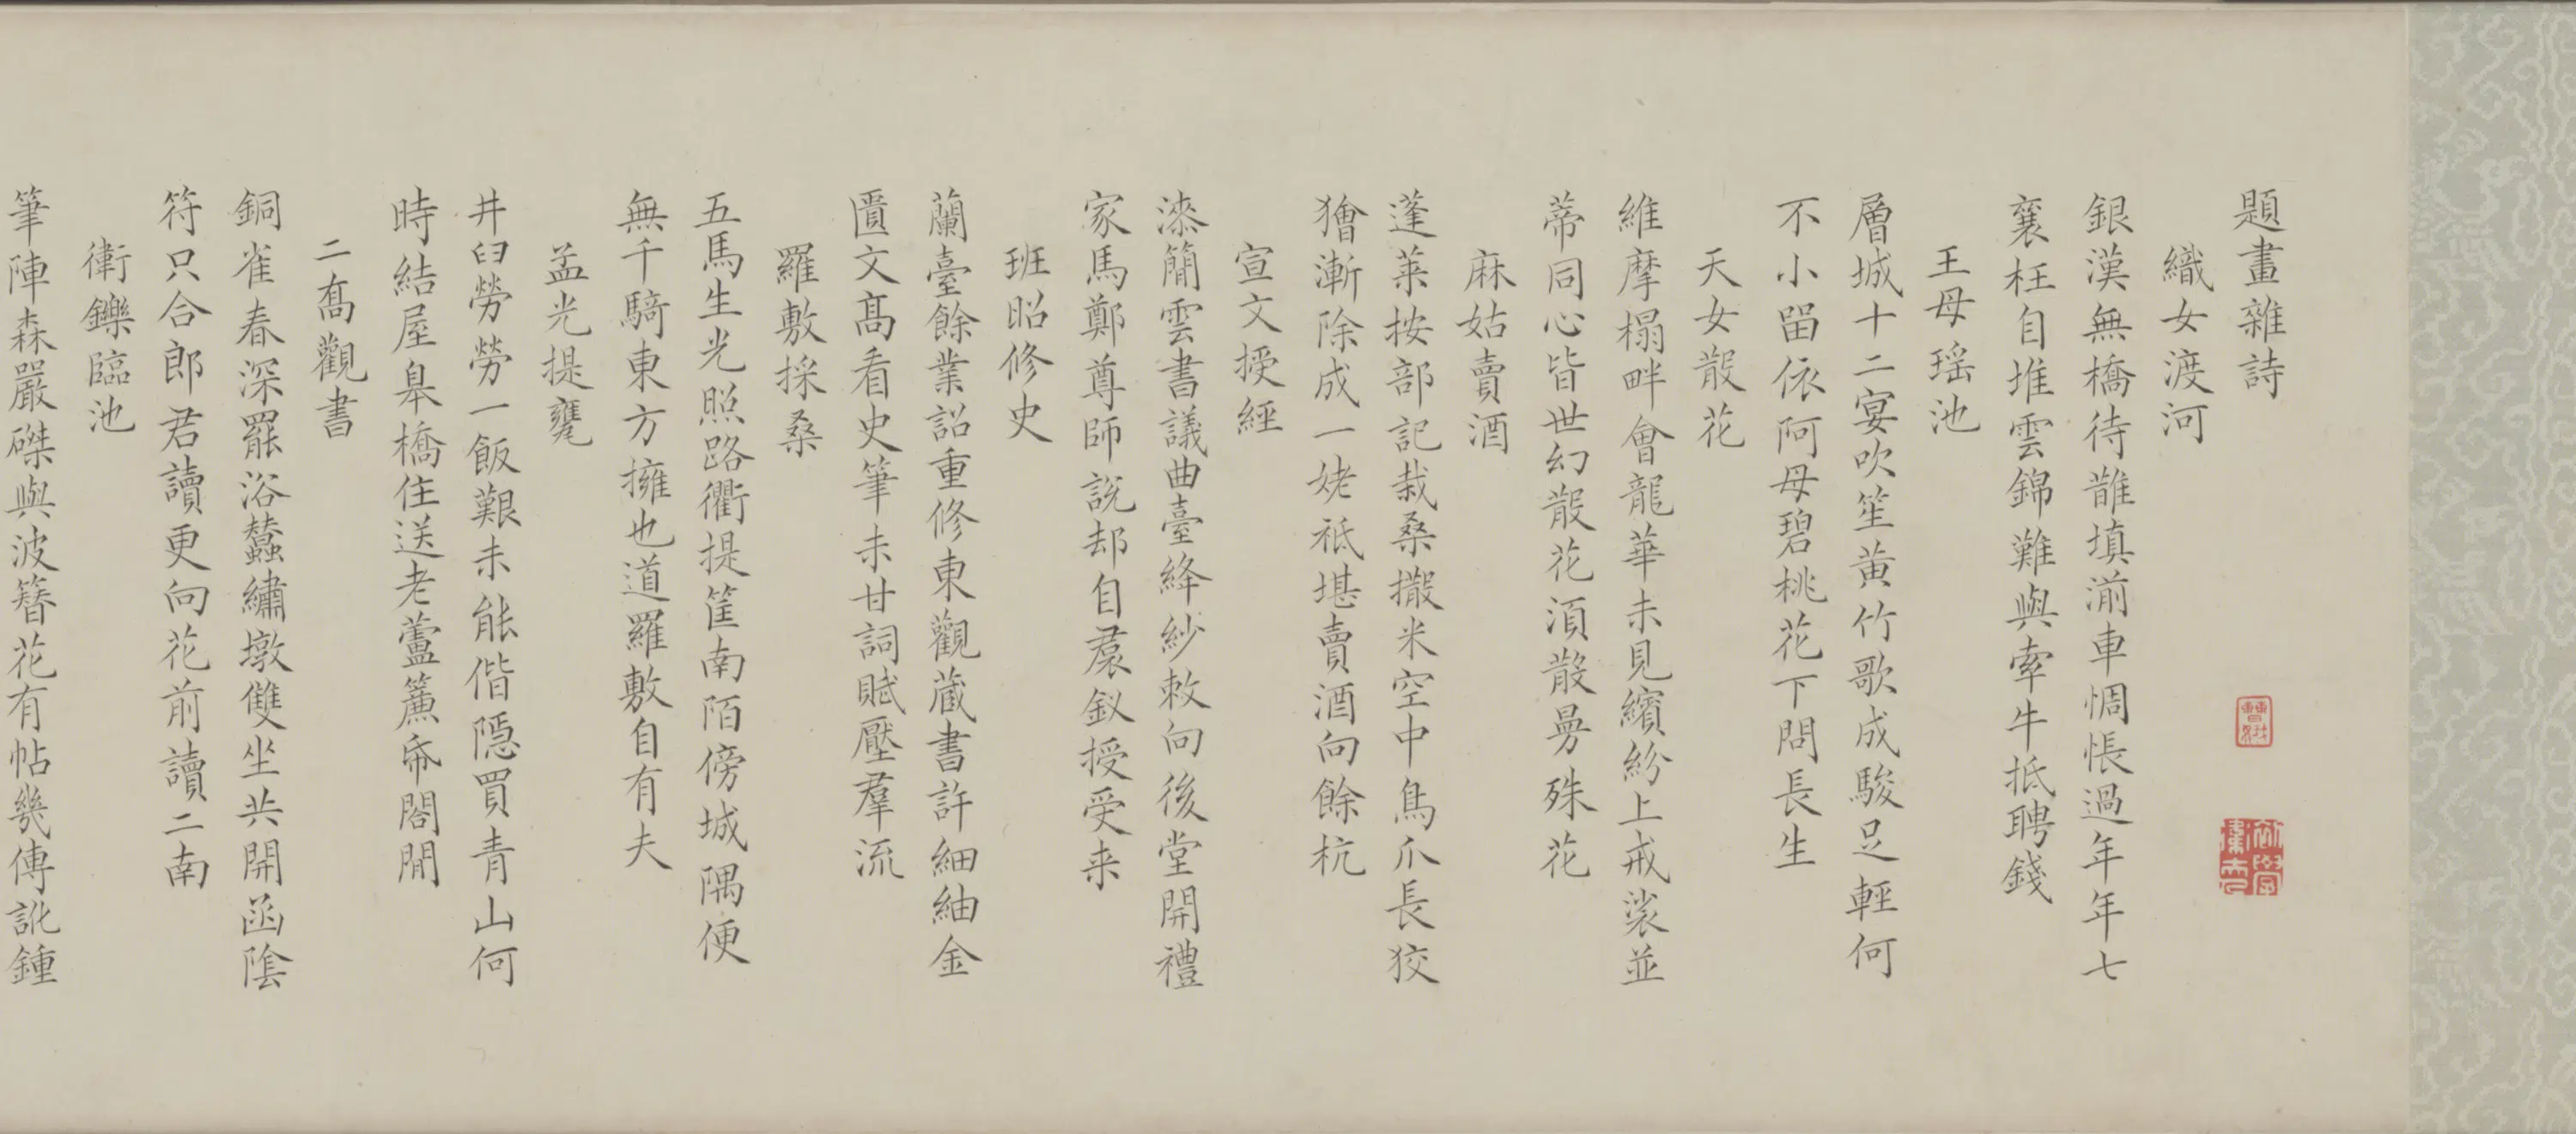 題畫雜詩
織女渡河
銀漢無橋待鵲填湔車惆悵過年年七
襄枉自堆雲錦難與牽牛抵聘錢
王母瑤池
層城十二宴吹笙黃竹歌成駿足輕何
不小留依阿母碧桃花下問長生
天女散花
維摩榻畔會龍華未見繽紛上戒裟並
蒂同心皆世幻散花須散曼殊花
麻姑賣酒
蓬萊按部記栽桑撒米空中鳥爪長狡
獪漸除成一姥祇堪賣酒向餘杭
宣文授經
漆簡雲書議曲臺絳紗敕向後堂開禮
家馬鄭尊師說却自裠釵授受来
班昭修史
蘭臺餘業詔重修東觀蔵書許細紬金
匱文髙看史筆未甘詞賦壓羣流
羅敷採桑
五馬生光照路衢提筐南陌傍城隅便
無千騎東方擁也道羅敷自有夫
孟光提甕
井臼勞勞一飯艱未能偕隱買青山何
時結屋臯橋住送老蘆簾帋閤閒
二喬觀書
銅雀春深罷浴蠶繡墩雙坐共開函陰
符只合郎君讀更向花前讀二南
衛鑠臨池
筆陣森嚴磔與波簪花有帖幾傳訛鍾